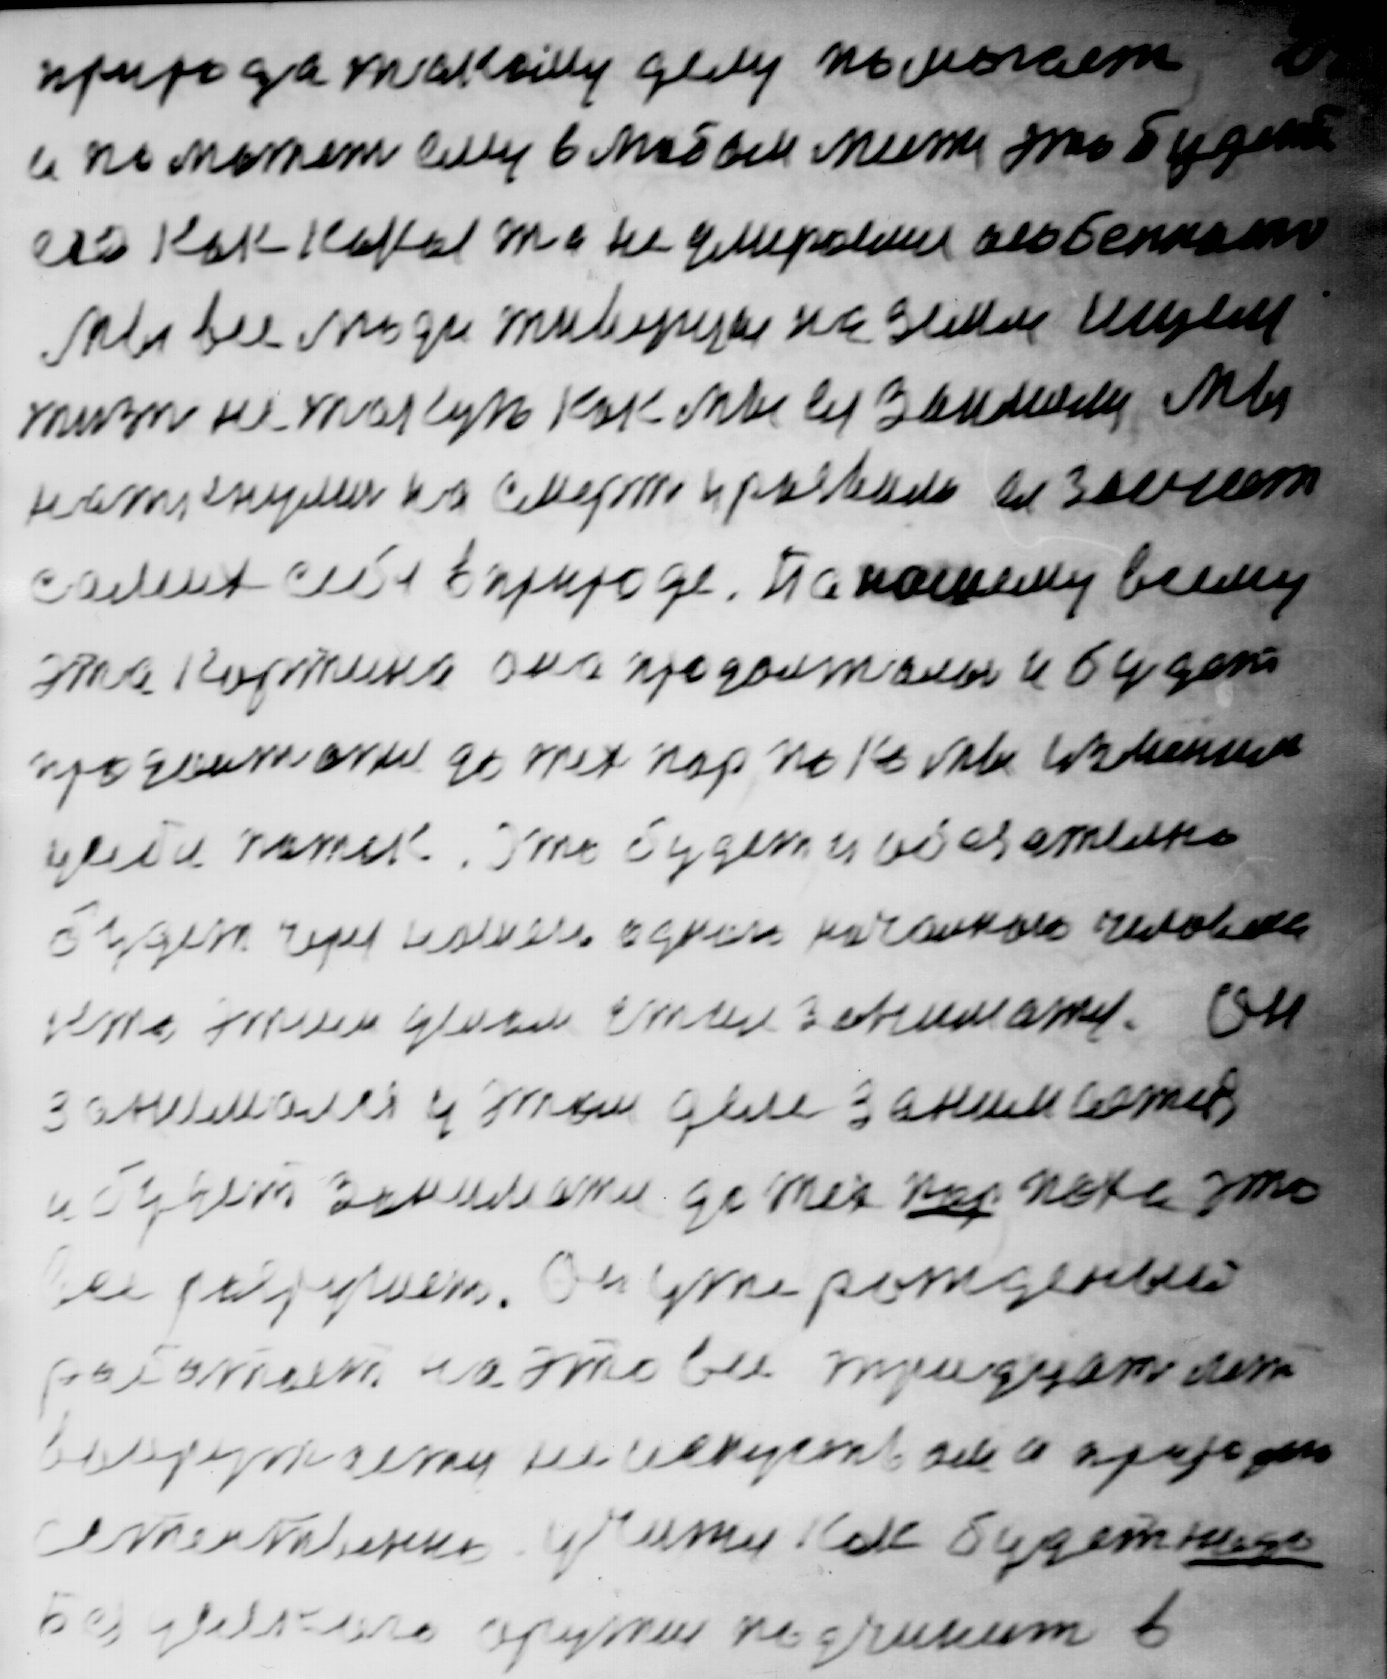 природа такому делу помогает
и поможет ему в любом месте это будет
его как какая то не умероеми особенности
Мы все люди живущие на земле ищем
жизн не такую как мы ея занимаем Мы
наткнулись на смерт и развили ея заочнет
самих себя в природе. По нашему всему
эта картина она продолжалас и будет
продолжатся до тех пор пока мы изменим
у себя поток. Это будет и обязателно
будет через одного началного человека
кто этим делом стал заниматся. Он
занимался и этом деле занимается
и будет заниматся до тех пор пока это
все разрушет. Он уже рожденный
работает на это все тридцат лет
вооружается не искуством а природою
естественно учится как будет надо
без усякого оружия подчинит в